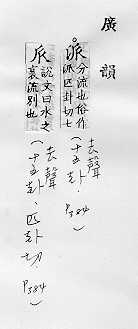 廣韻
𠂢分流也俗作
派匹卦切七
去聲
(十五卦) P384
𠂢說文曰水之
衺流別也
去聲
(十五卦、匹卦切) P384